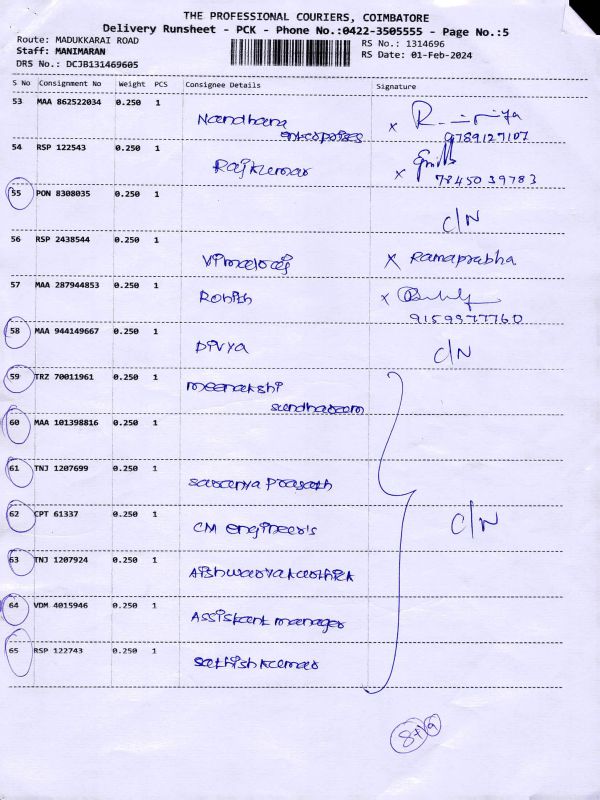 THE PROFESSIONAL COURIERS, COIMBATORE
Delivery Runsheet - PCK - Phone No.:0422-3505555 - Page No.:5
Route: MADUKKARAI ROAD
RS No.: 1314696
Staff: MANIMARAN
RS Date: 01-Feb-2024
DRS No.: DCJB131469605
S No Consignment No Weight PCS Consignee Details Signature
53 MAA 862522034 0.250 1
Nandhana
enterprises
x
9789127107
54 RSP 122543 0.250 1
Rajkumar
x
7845039783
55 PON 8308035 0.250 1
C/N
56 RSP 2438544 0.250 1
Vimalraj x Ramaprabha
57 MAA 287944853 0.250 1
Rohith x
9159377760
58 MAA 944149667 0.250 1
Divya C/N
59 TRZ 70011961 0.250 1
meenakshi
sundharam
60 MAA 101398816 0.250 1
61 TNJ 1207699 0.250 1
saranya prasath
62 CPT 61337 0.250 1
CM engineer's C/N
63 TNJ 1207924 0.250 1
Aishwarya karthick
64 VDM 4015946 0.250 1
Assistant manager
65 RSP 122743 0.250 1
sathish kumar